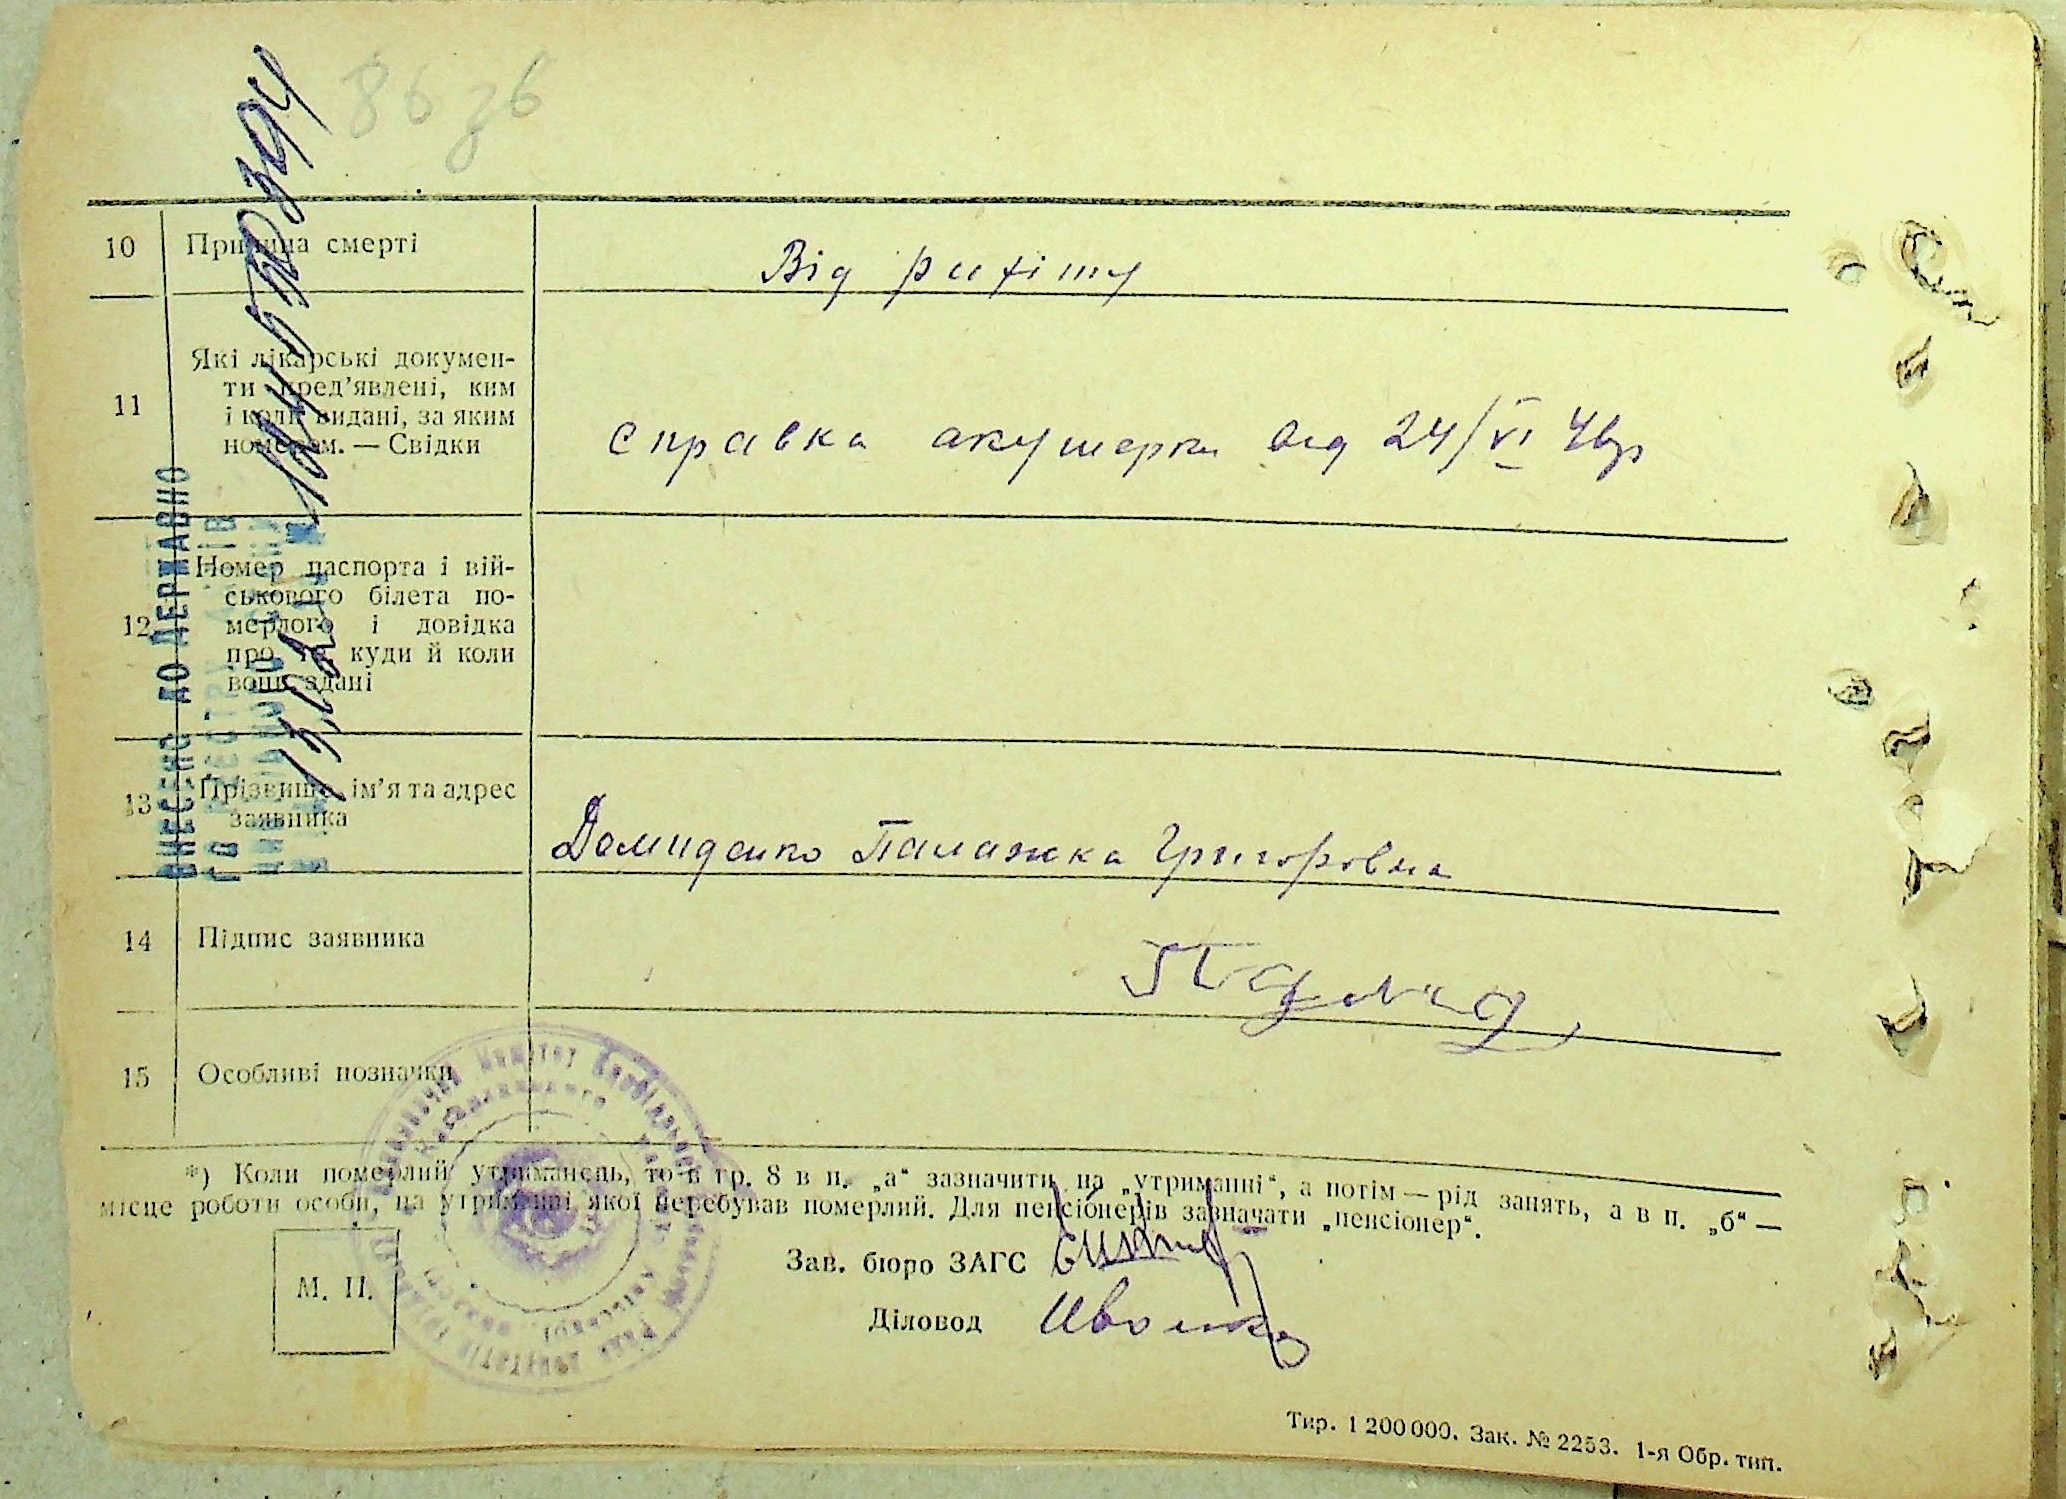 86 зб
10 Причина смерті
Від рихіту
11 Які лікарські докумен-
ти пред’явлені, ким
і коли видані, за яким
номером. — Свідки
справка акушерки від 24/VI
12 Номер паспорта і вій-
ськового білета по-
мерлого і довідка
про те, куди й коли
вони здані
13 Прізвище, ім’я та адрес
заявника
Демиденко Палажка Григоровна
14 Підпис заявника
15 Особливі позначки
*) Коли померлий утриманець, то в гр. 8 в п. „а“ зазначити на „утриманні“, а потім — рід занять, а в п. „б“ —
місце роботи особи, на утриманні якої перебував померлий. Для пенсіонерів зазначати „пенсіонер“.
Зав. бюро ЗАГС
М. П.
Діловод
Тир. 1 200 000. Зак. № 2253. 1-я Обр. тип.
ВНЕСЕНО ДО ДЕРЖАВНО
ГО РЕЄСТРУ АКТІВ